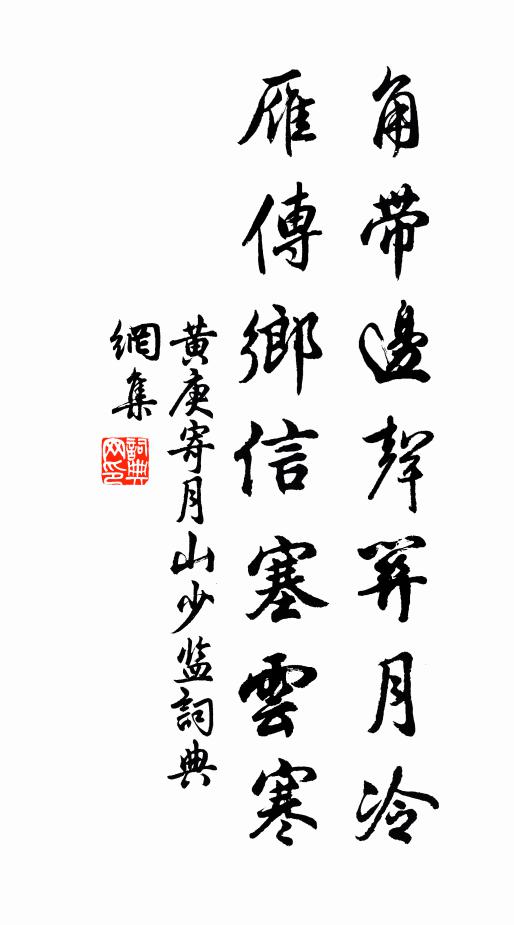 角帶邊聲關月冷
雁傳鄉信塞雲寒
黄庚寄月山少监詞典
網集
詞典
网印